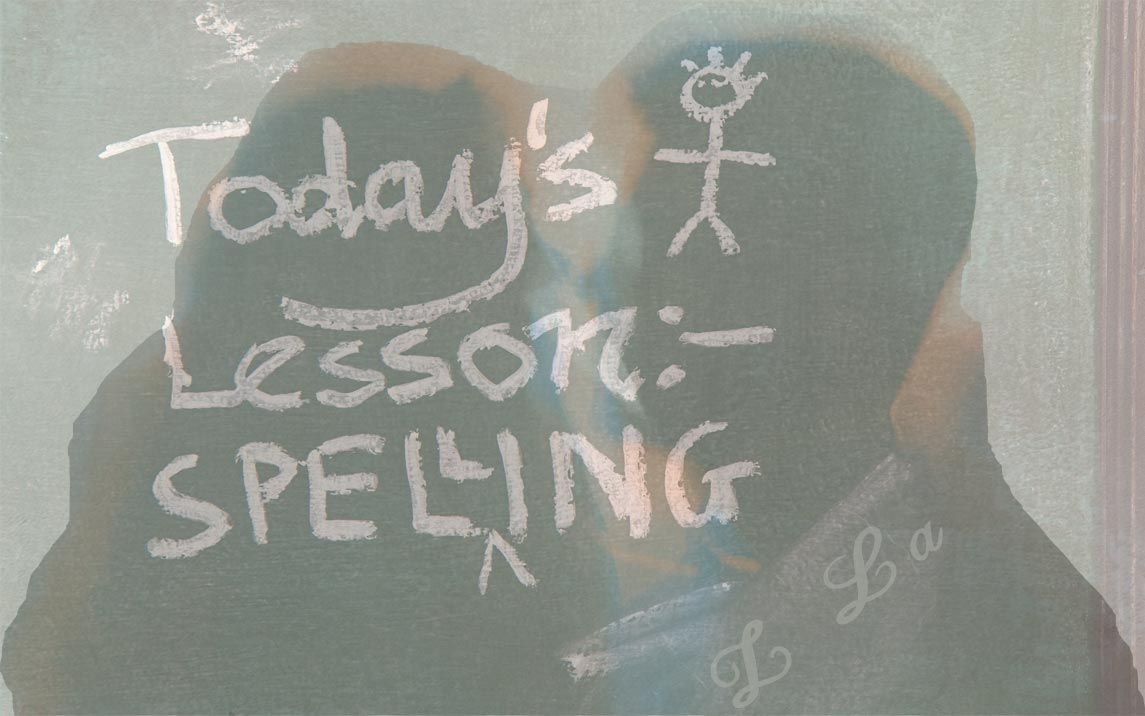 Today's
Lesson:-
SPELLING
L La